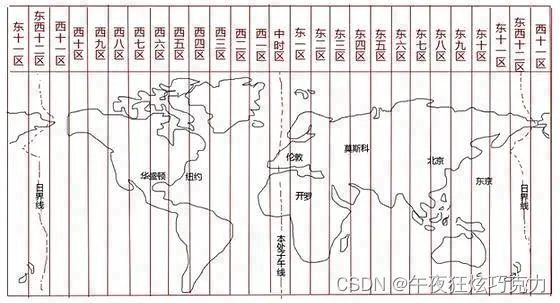 东十一区
东西十二区
西十一区
西十区
西九区
西八区
西七区
西六区
西五区
西四区
西三区
西二区
西一区
中时区
东一区
东二区
东三区
东四区
东五区
东六区
东七区
东八区
东九区
东十区
东十一区
东西十二区
西十一区
莫斯科
伦敦
北京
华盛顿
纽约
东京
开罗
日界线
日界线
本处子午线
CSDN @午夜狂炫巧克力